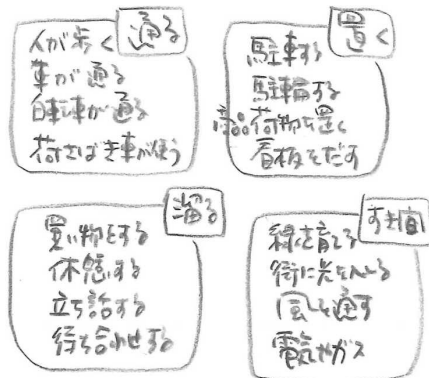 通る
人が歩く
車が通る
自転車が通る
荷さばき車が使う
置く
駐車する
駐輪する
商品荷物を置く
看板をだす
溜る
買い物をする
休憩する
立ち話する
待ち合わせする
すき間
緑を育てる
街に光を入れる
風を通す
電気やガス